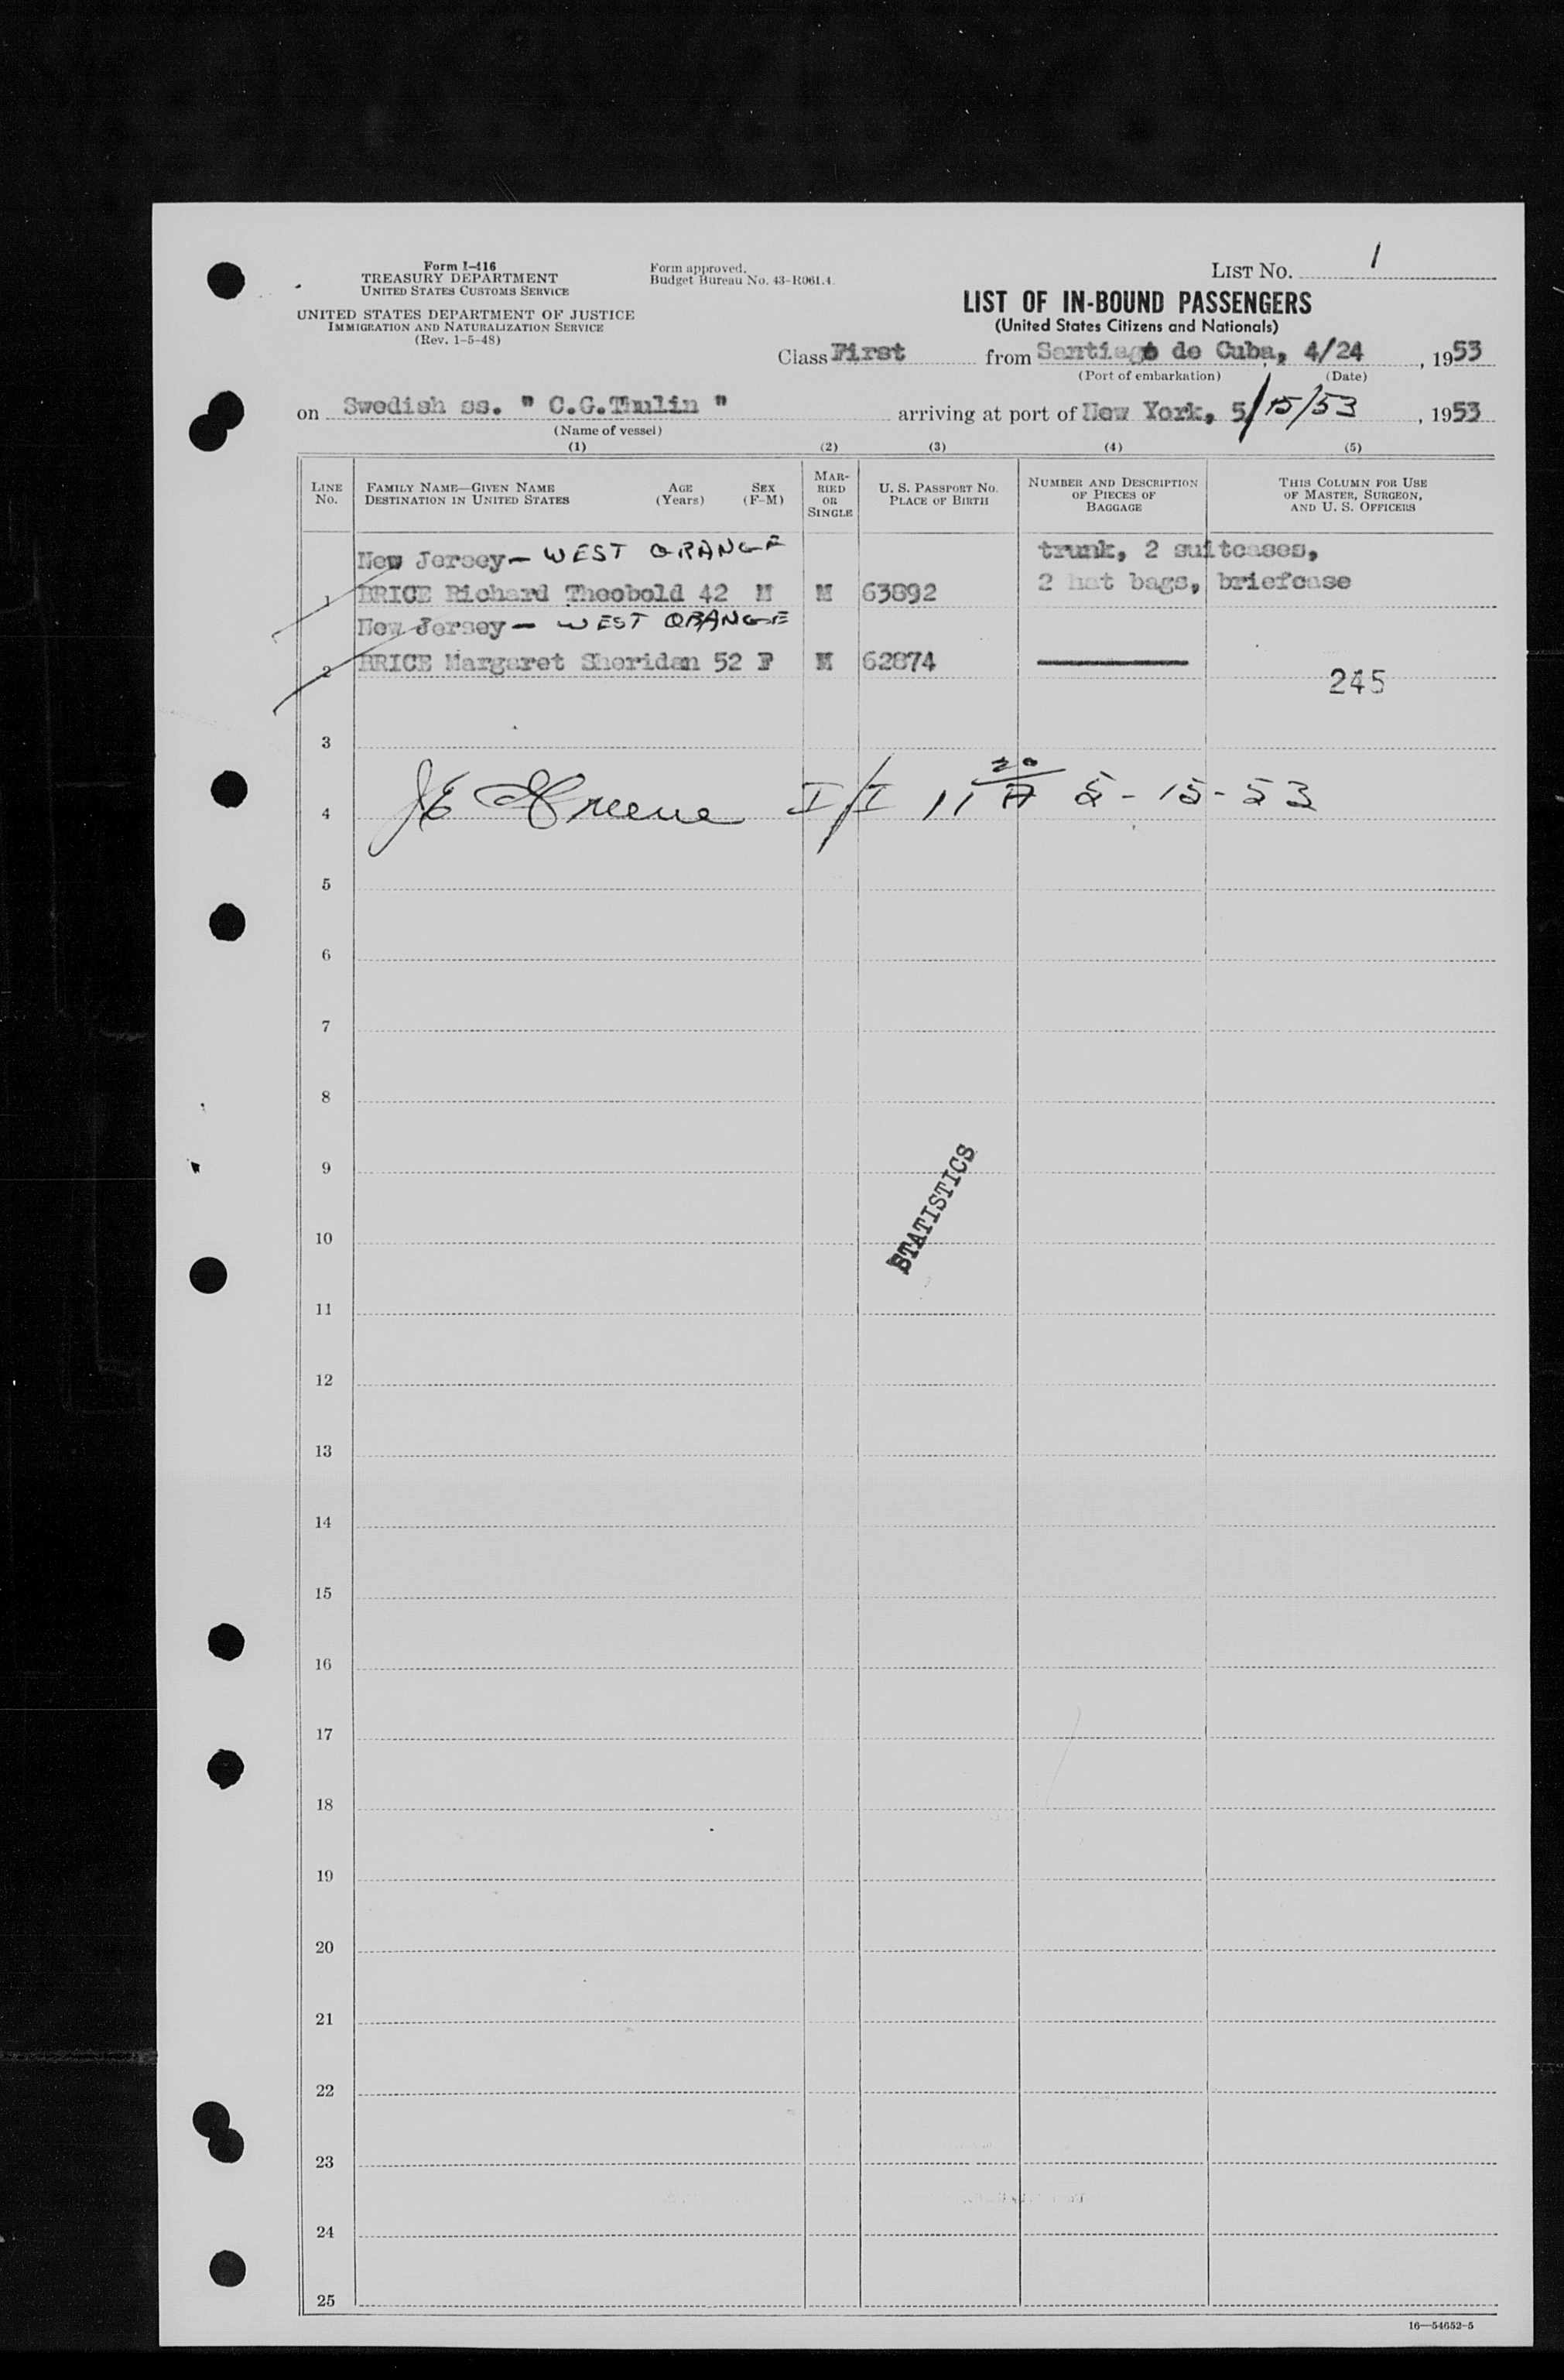 Form I-416
TREASURY DEPARTMENT
UNITED STATES CUSTOMS SERVICE
UNITED STATES DEPARTMENT OF JUSTICE
IMMIGRATION AND NATURALIZATION SERVICE
(Rev. 1-5-48)
Form approved.
Budget Bureau No. 43-R061.4.
LIST NO. 1
LIST OF IN-BOUND PASSENGERS
(United States Citizens and Nationals)
Class First from Santiago de Cuba, 4/24, 1953
(Port of embarkation) (Date)
on Swedish ss. " C.G.Thulin " arriving at port of New York, 5/15/53, 1953
(Name of vessel)
(1) (2) (3) (4) (5)
LINE NO. FAMILY NAME—GIVEN NAME DESTINATION IN UNITED STATES AGE (Years) SEX (F-M) MARRIED OR SINGLE U. S. PASSPORT NO. PLACE OF BIRTH NUMBER AND DESCRIPTION OF PIECES OF BAGGAGE THIS COLUMN FOR USE OF MASTER, SURGEON, AND U. S. OFFICERS
New Jersey — WEST ORANGE trunk, 2 suitcases,
1 BRICE Richard Theobold 42 M M 63892 2 hat bags, briefcase
New Jersey — WEST ORANGE
2 BRICE Margaret Sheridan 52 F M 62874
245
3
4 Greene I/I 11 20 A 5-15-53
5
6
7
8
9
STATISTICS
10
11
12
13
14
15
16
17
18
19
20
21
22
23
24
25
16—54652-5